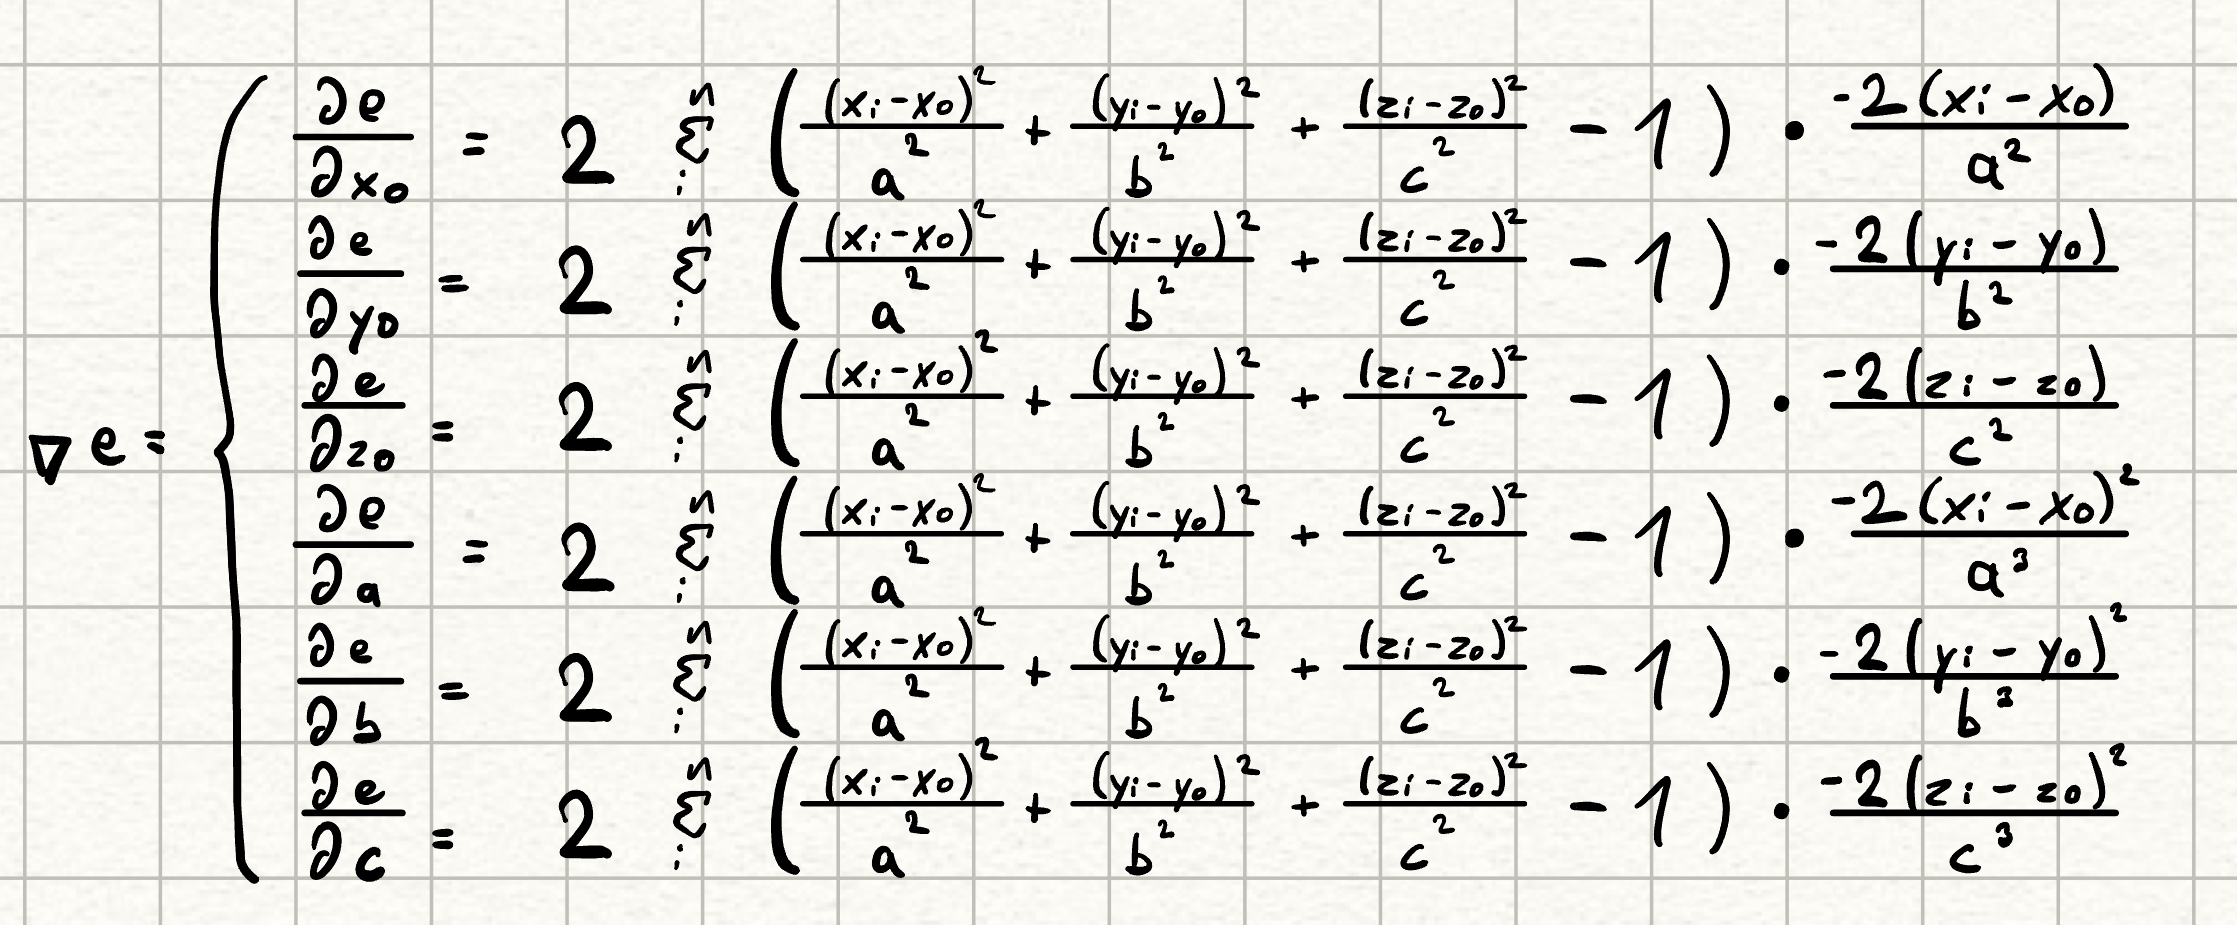 ∇e = { ∂e/∂x₀ = 2 Σᵢⁿ ( (xᵢ-x₀)²/a² + (yᵢ-y₀)²/b² + (zᵢ-z₀)²/c² - 1 ) · -2(xᵢ-x₀)/a²
∂e/∂y₀ = 2 Σᵢⁿ ( (xᵢ-x₀)²/a² + (yᵢ-y₀)²/b² + (zᵢ-z₀)²/c² - 1 ) · -2(yᵢ-y₀)/b²
∂e/∂z₀ = 2 Σᵢⁿ ( (xᵢ-x₀)²/a² + (yᵢ-y₀)²/b² + (zᵢ-z₀)²/c² - 1 ) · -2(zᵢ-z₀)/c²
∂e/∂a = 2 Σᵢⁿ ( (xᵢ-x₀)²/a² + (yᵢ-y₀)²/b² + (zᵢ-z₀)²/c² - 1 ) · -2(xᵢ-x₀)²/a³
∂e/∂b = 2 Σᵢⁿ ( (xᵢ-x₀)²/a² + (yᵢ-y₀)²/b² + (zᵢ-z₀)²/c² - 1 ) · -2(yᵢ-y₀)²/b³
∂e/∂c = 2 Σᵢⁿ ( (xᵢ-x₀)²/a² + (yᵢ-y₀)²/b² + (zᵢ-z₀)²/c² - 1 ) · -2(zᵢ-z₀)²/c³